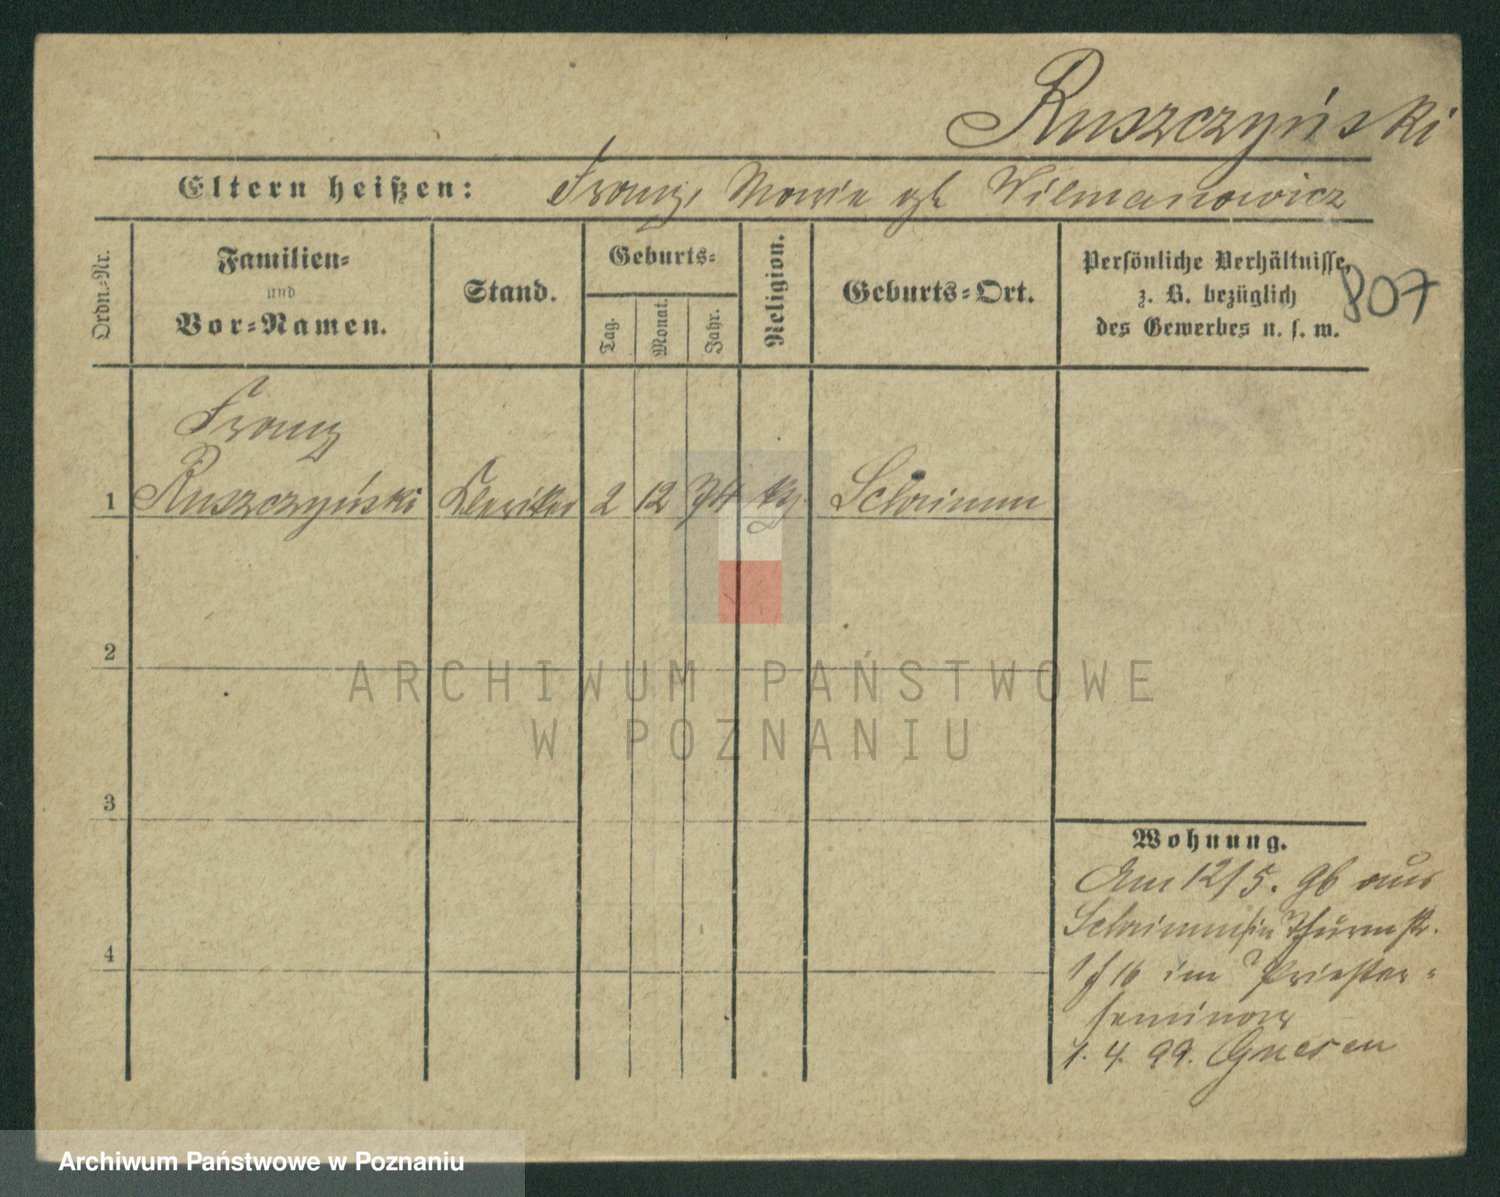 Ruszczyński
Eltern heißen: Franz, Marie gb Wilmanowicz
Ordn.-Nr.
Familien-
und
Vor-Namen.
Stand.
Geburts-
Tag.
Monat.
Jahr.
Religion.
Geburts-Ort.
Persönliche Verhältnisse,
z. B. bezüglich
des Gewerbes u. s. w.
807
Franz
1 Ruszczyński Kleriker 2 12 74 Schrimm
2
3
4
Wohnung.
Am 12/5. 96 aus
Schrimm in Thurmstr.
im Priester-
seminar
1. 4. 99. Gnesen
ARCHIWUM PAŃSTWOWE
W POZNANIU
Archiwum Państwowe w Poznaniu